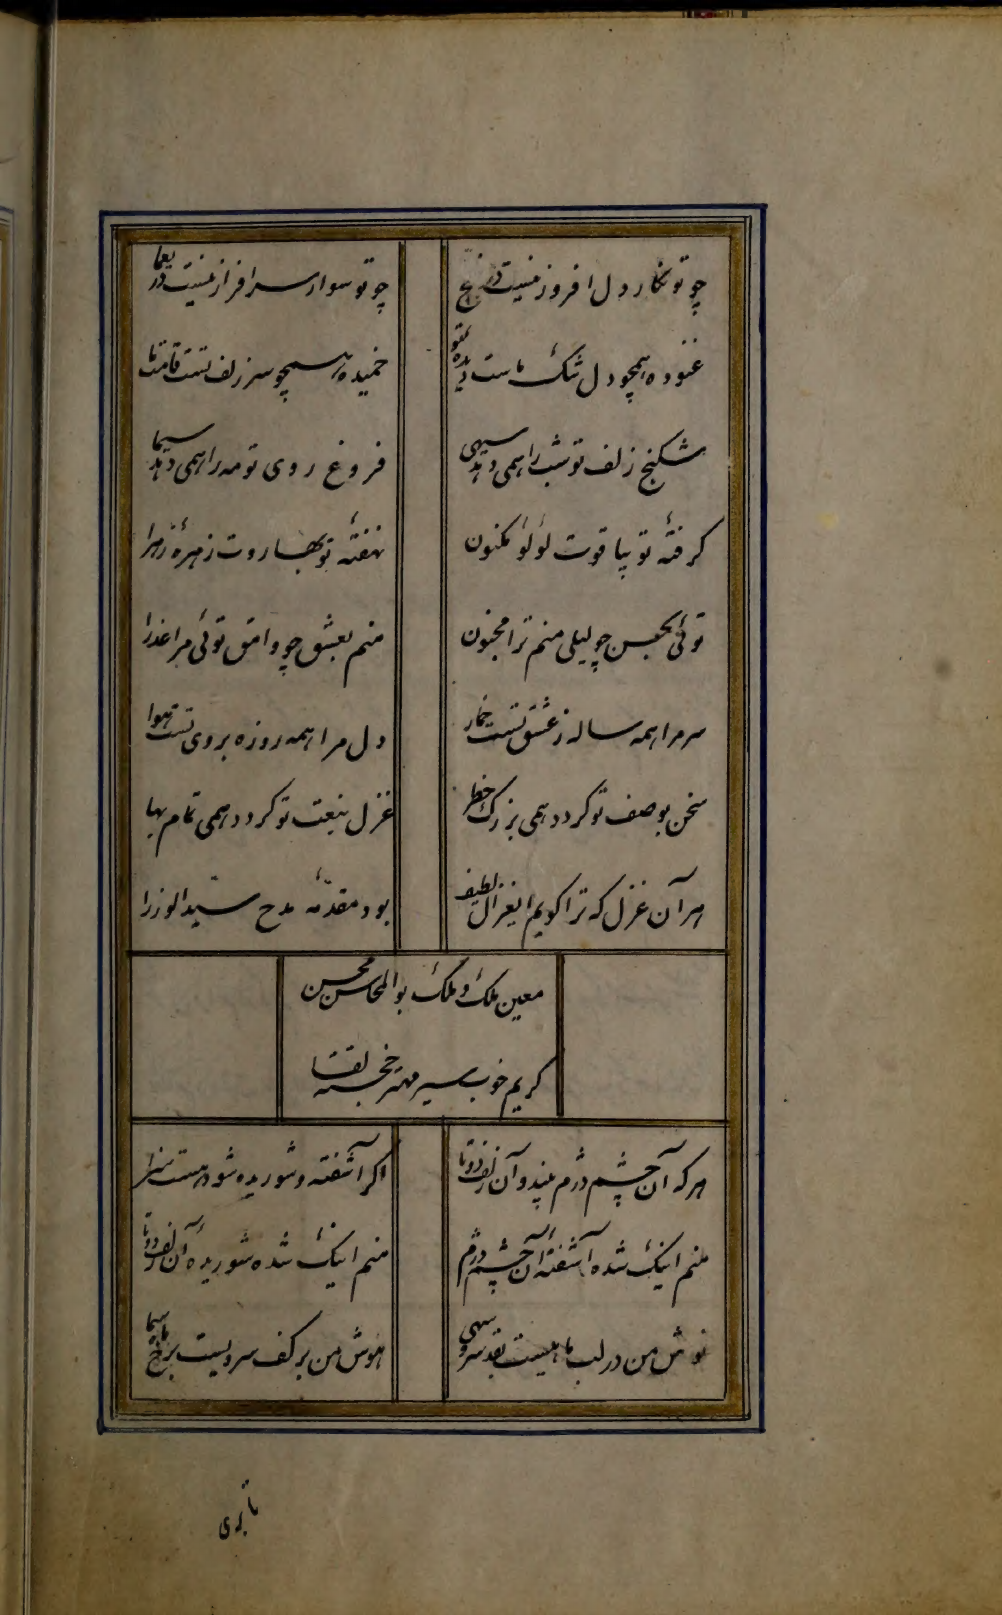 چو تو نگار دل افروز نیست در خلخ
چو تو سوار سرافراز نیست در یغما
غنوده همچو دل تنگ ماست دیده تو
خمیده همچو سر زلف تست قامت ما
شکنج زلف تو شب را همی دهد سیهی
فروغ روی تو مه را همی دهد سیما
گرفته تو بیاقوت لؤلؤ مکنون
نهفته تو بهاروت زهره زهرا
توئی بحسن چو لیلی منم ترا مجنون
منم بعشق چو وامق توئی مرا عذرا
سر مرا همه ساله ز عشق تست خمار
دل مرا همه روزه بروی تست هوا
سخن بوصف تو گردد همی بزرگ خطر
غزل بنعت تو گردد همی تمام بها
هر آن غزل که ترا گویم ای غزال لطیف
بود مقدمه مدح سید الوزرا
معین ملک و ملک بوالمحاسن محسن
کریم خوب سیر مهتر خجسته لقا
هر که آن چشم دژم بیند و آن زلف دوتا
اگر آشفته و شوریده شود هست سزا
منم اینک شده آشفته آن چشم دژم
منم اینک شده شوریده آن زلف دوتا
نوش من در لب ماهیست بقد سرو سهی
هوش من بر کف سرویست برخ ماه سما